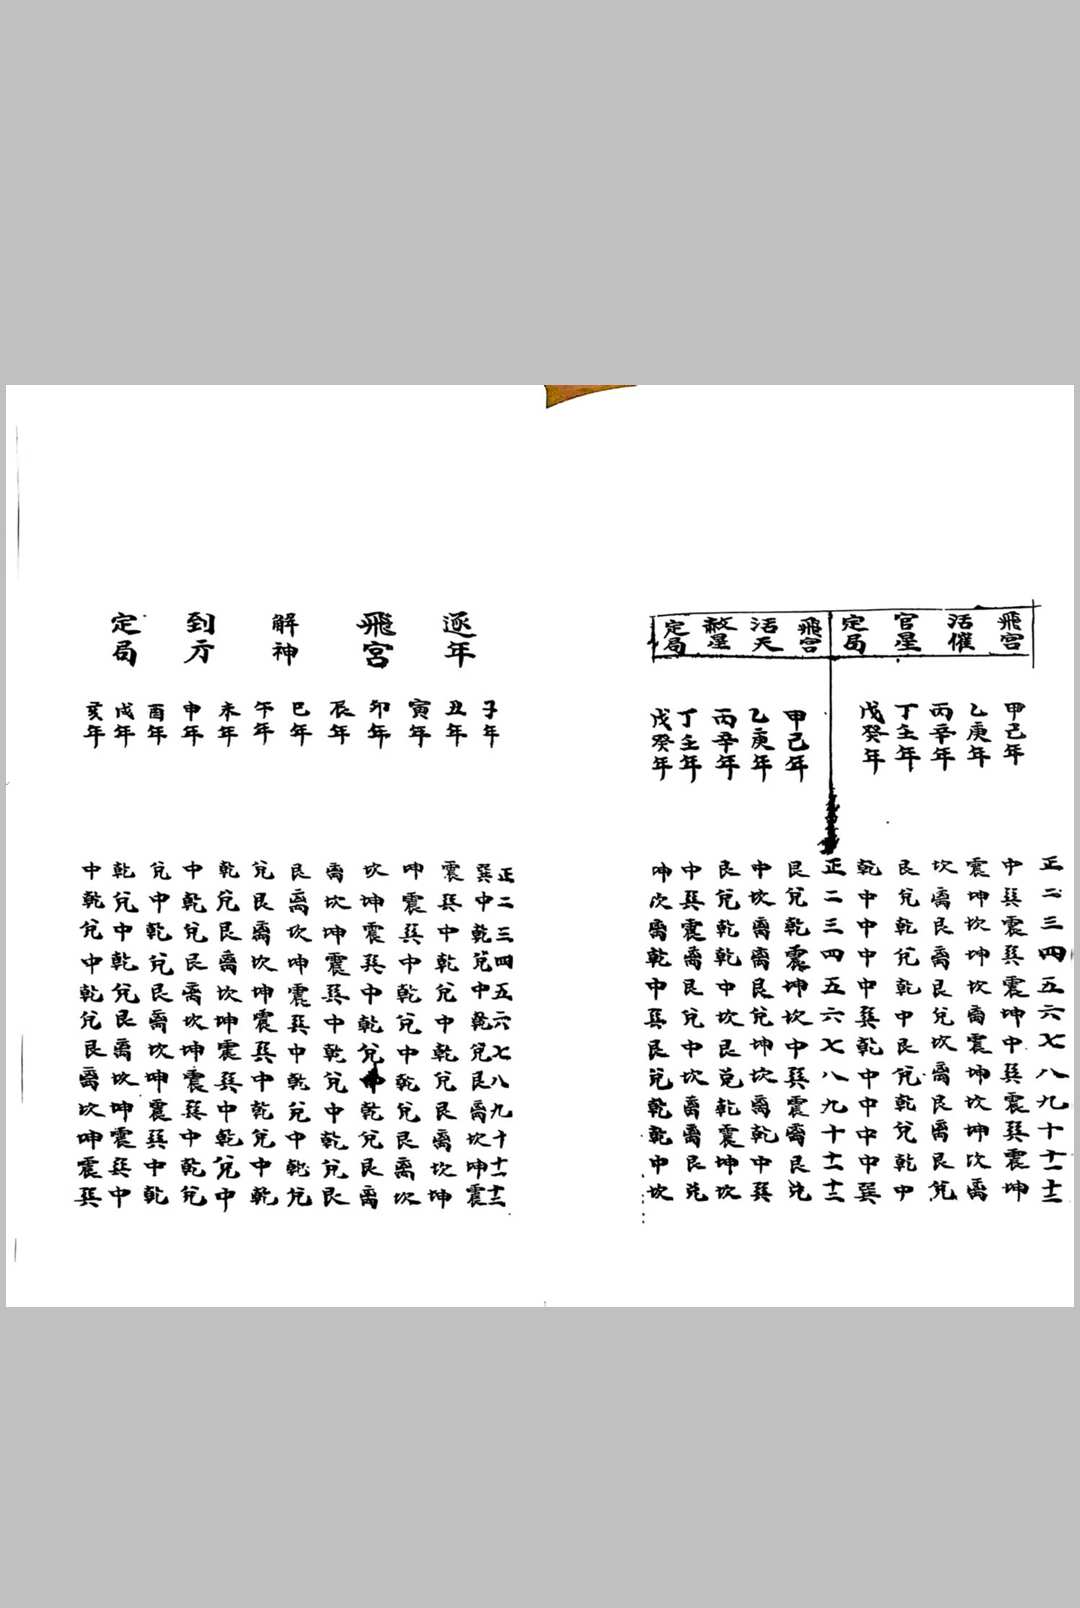 飛宮
活催
官星
定局
正二三四五六七八九十十一十二
甲己年 中巽震巽震坤中巽震巽震坤
乙庚年 震坤坎坤坎离震坤坎坤坎离
丙辛年 坎离艮离艮兌坎离艮离艮兌
丁壬年 艮兌乾兌乾中艮兌乾兌乾中
戊癸年 乾中中中中巽乾中中中中巽
飛宮
活天
赦星
定局
正二三四五六七八九十十一十二
甲己年 艮兌乾震坤坎中巽震离艮兌
乙庚年 中坎离离艮兌坤坎离乾中巽
丙辛年 艮兌乾乾中坎艮兌乾震坤坎
丁壬年 中巽震离艮兌中坎离离艮兌
戊癸年 坤坎离乾中巽艮兌乾乾中坎
逐年
飛宮
解神
到方
定局
正二三四五六七八九十十一十二
子年 巽中乾兌中乾兌艮离坎坤震
丑年 震巽中乾兌中乾兌艮离坎坤
寅年 坤震巽中乾兌中乾兌艮离坎
卯年 坎坤震巽中乾兌中乾兌艮离
辰年 离坎坤震巽中乾兌中乾兌艮
巳年 艮离坎坤震巽中乾兌中乾兌
午年 兌艮离坎坤震巽中乾兌中乾
未年 乾兌艮离坎坤震巽中乾兌中
申年 中乾兌艮离坎坤震巽中乾兌
酉年 兌中乾兌艮离坎坤震巽中乾
戌年 乾兌中乾兌艮离坎坤震巽中
亥年 中乾兌中乾兌艮离坎坤震巽